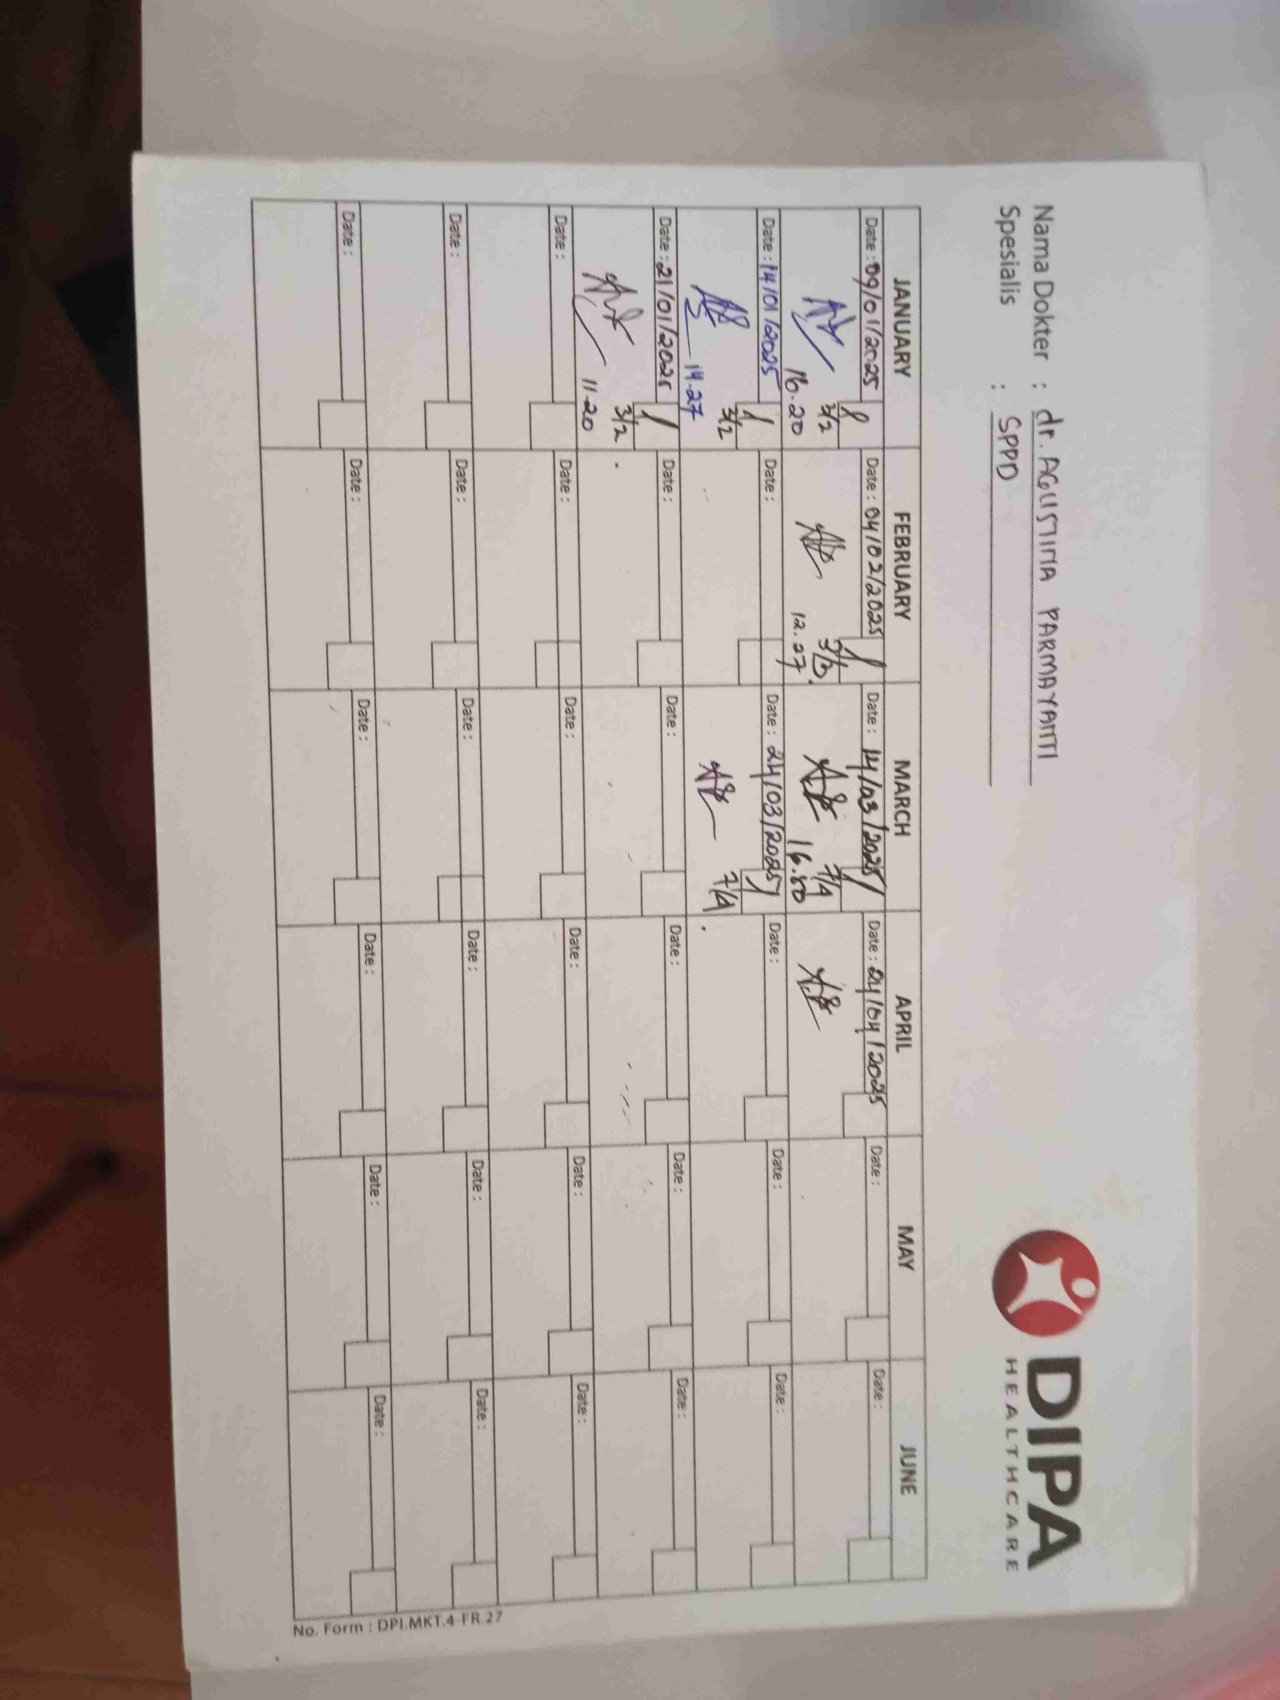 Nama Dokter : dr. AGUSTINA PARMAYANTI
Spesialis : SPPD
DIPA
HEALTHCARE
JANUARY FEBRUARY MARCH APRIL MAY JUNE
Date : 09/01/2025 Date : 04/02/2025 Date : 14/03/2025 Date : 24/04/2025 Date : Date :
3/2 3/3 7/4
16.20 12.27 16.50
Date : 14/01/2025 Date : Date : 24/03/2025 Date : Date : Date :
3/2 7/4
14.27
Date : 21/01/2025 Date : Date : Date : Date : Date :
3/2
11.20
Date : Date : Date : Date : Date : Date :
Date : Date : Date : Date : Date : Date :
Date : Date : Date : Date : Date : Date :
No. Form : DPI.MKT.4-FR.27